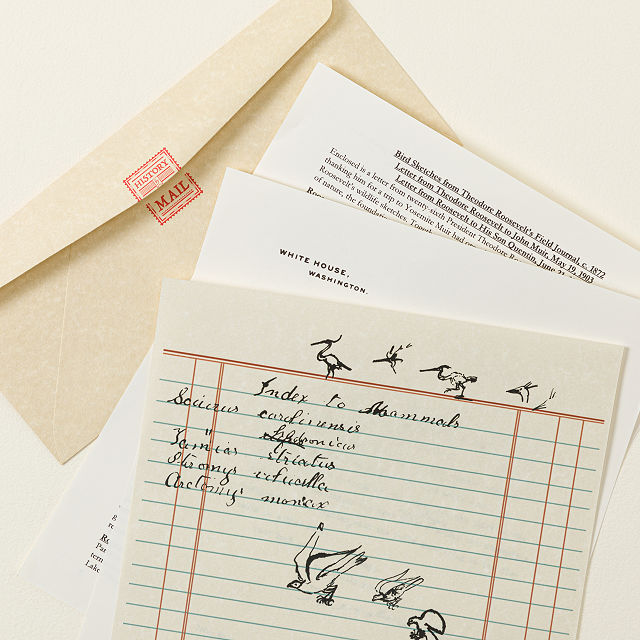 HISTORY
MAIL
Bird Sketches from Theodore Roosevelt's Field Journal, c. 1872
Letter from Theodore Roosevelt to John Muir, May 19, 1903
Letter from Roosevelt to His Son Quentin, June
Enclosed is a letter from twenty-sixth President Theodore
thanking him for a trip to Yosemite. Muir had
Roosevelt's wildlife sketches.
of nature, the
WHITE HOUSE,
WASHINGTON.
Index to Mammals
Sciurus carolinensis
Tamias striatus
Arctomys monax
Lake